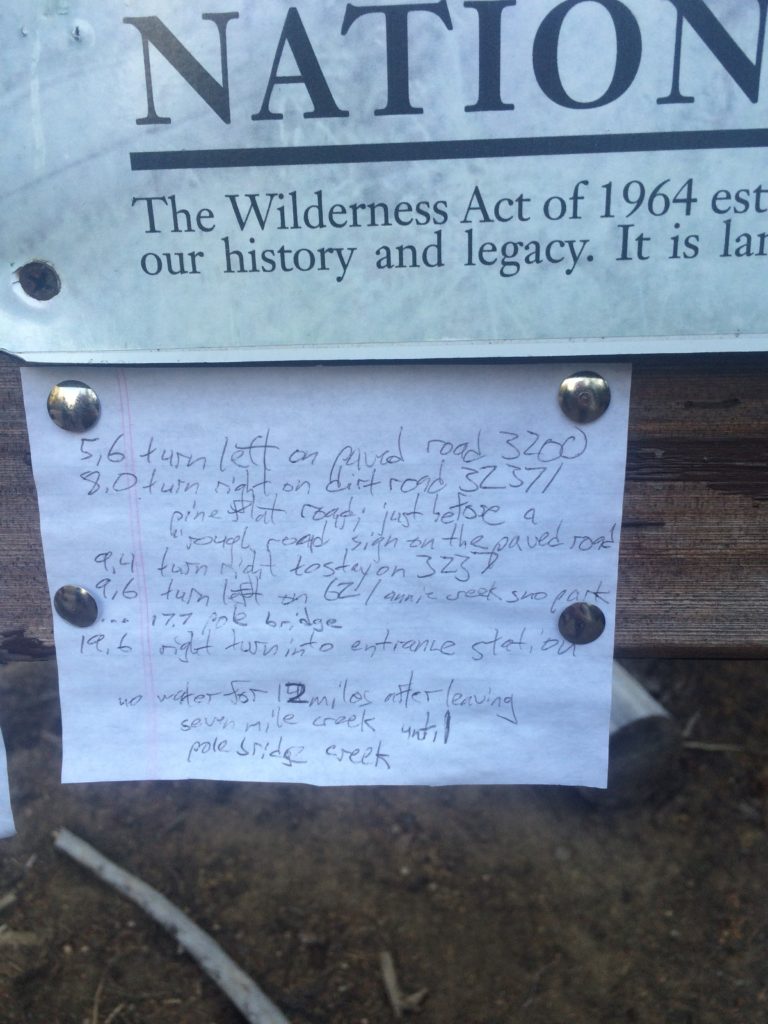 NATION
The Wilderness Act of 1964 est
our history and legacy. It is lan
5,6 turn left on paved road 3200
8.0 turn right on dirt road 32371
pine flat road; just before a
"rough road" sign on the paved road
9,4 turn right to stay on 3237
9,6 turn left on 62 / annie creek sno park
... 17.7 pole bridge
19,6 right turn into entrance station
no water for 12 miles after leaving
seven mile creek until
pole bridge creek